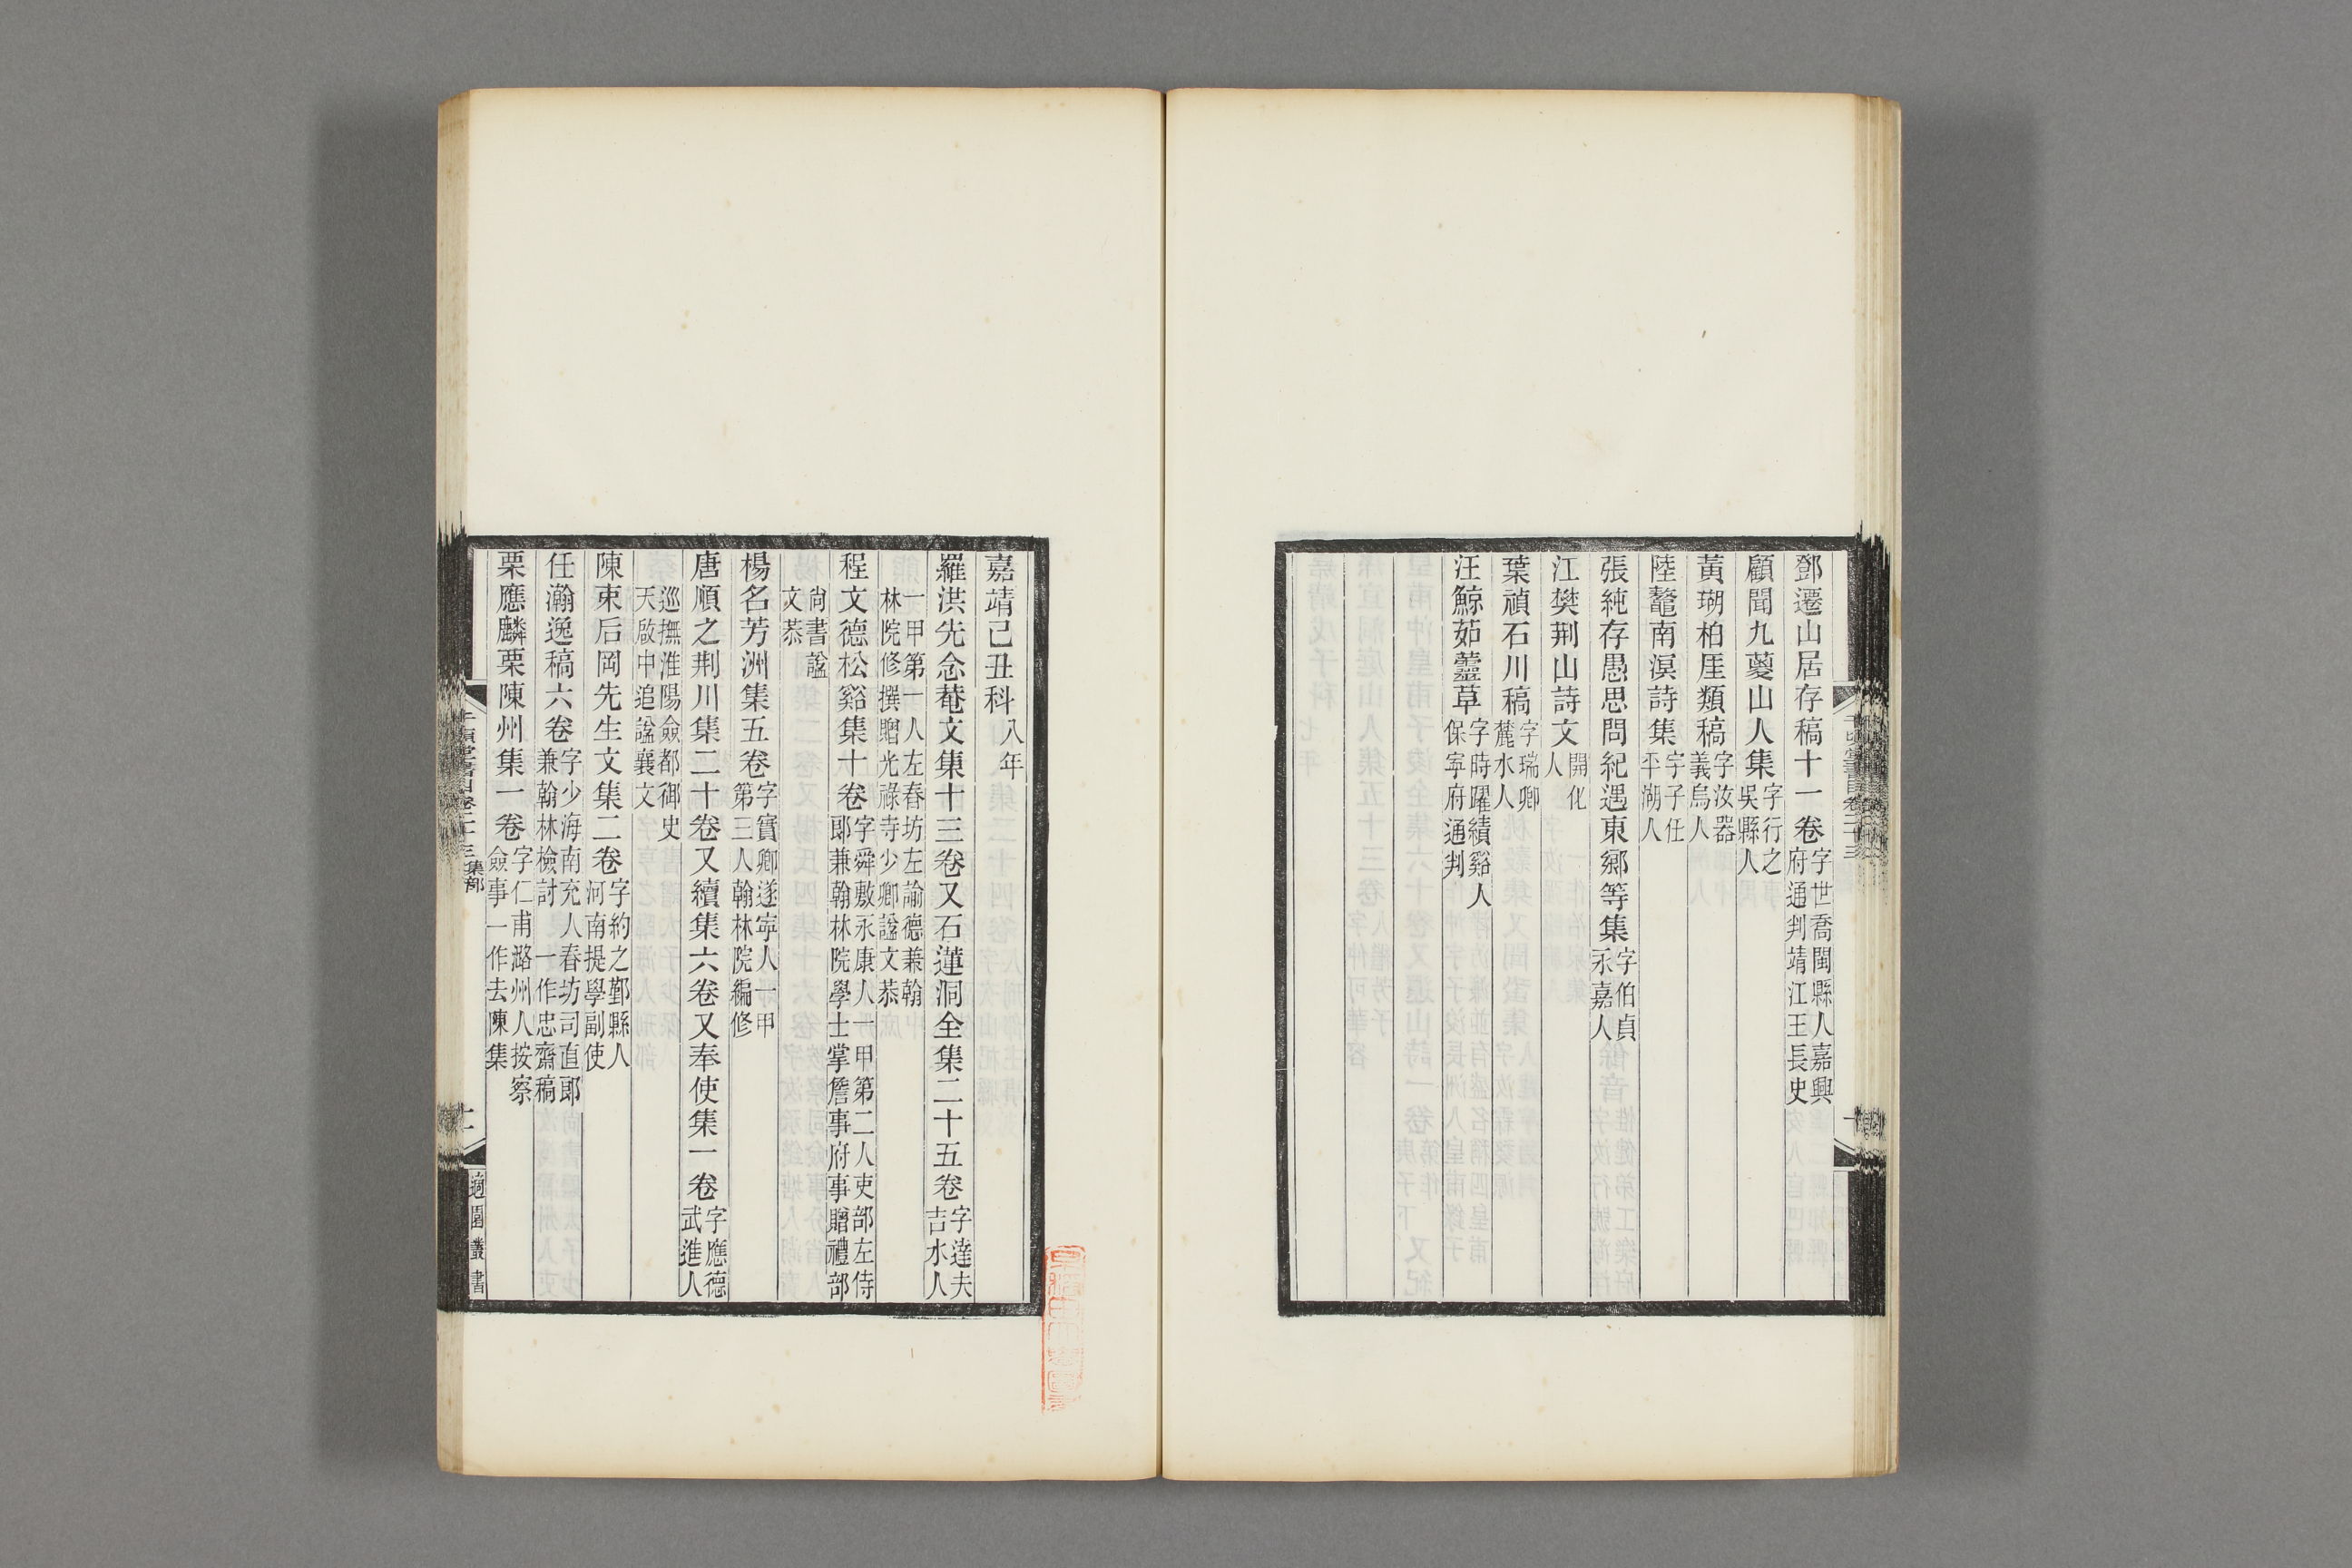 鄧遷山居存稿十一卷字世喬閩縣人嘉興府通判靖江王長史
顧聞九夔山人集字行之吳縣人
黃瑚柏厓類稿字汝器義烏人
陸鼇南溟詩集字子任平湖人
張純存愚思問紀遇東鄉等集字伯貞永嘉人
江樊荆山詩文開化人
葉禎石川稿字瑞卿麓水人
汪鯨茹虀草字時躍績谿人保寧府通判
嘉靖己丑科八年
羅洪先念菴文集十三卷又石蓮洞全集二十五卷字達夫吉水人
一甲第一人左春坊左諭德兼翰林院修撰贈光祿寺少卿諡文恭
程文德松谿集十卷字舜敷永康人一甲第二人吏部左侍郎兼翰林院學士掌詹事府事贈禮部
尚書諡文恭
楊名芳洲集五卷字實卿遂寧人一甲第三人翰林院編修
唐順之荆川集二十卷又續集六卷又奉使集一卷字應德武進人
巡撫淮陽僉都御史天啟中追諡襄文
陳束后岡先生文集二卷字約之鄞縣人河南提學副使
任瀚逸稿六卷字少海南充人春坊司直郎兼翰林檢討一作忠齋稿
栗應麟栗陳州集一卷字仁甫潞州人按察僉事一作去陳集
千頃堂書目卷二十三集部
十一
適園叢書